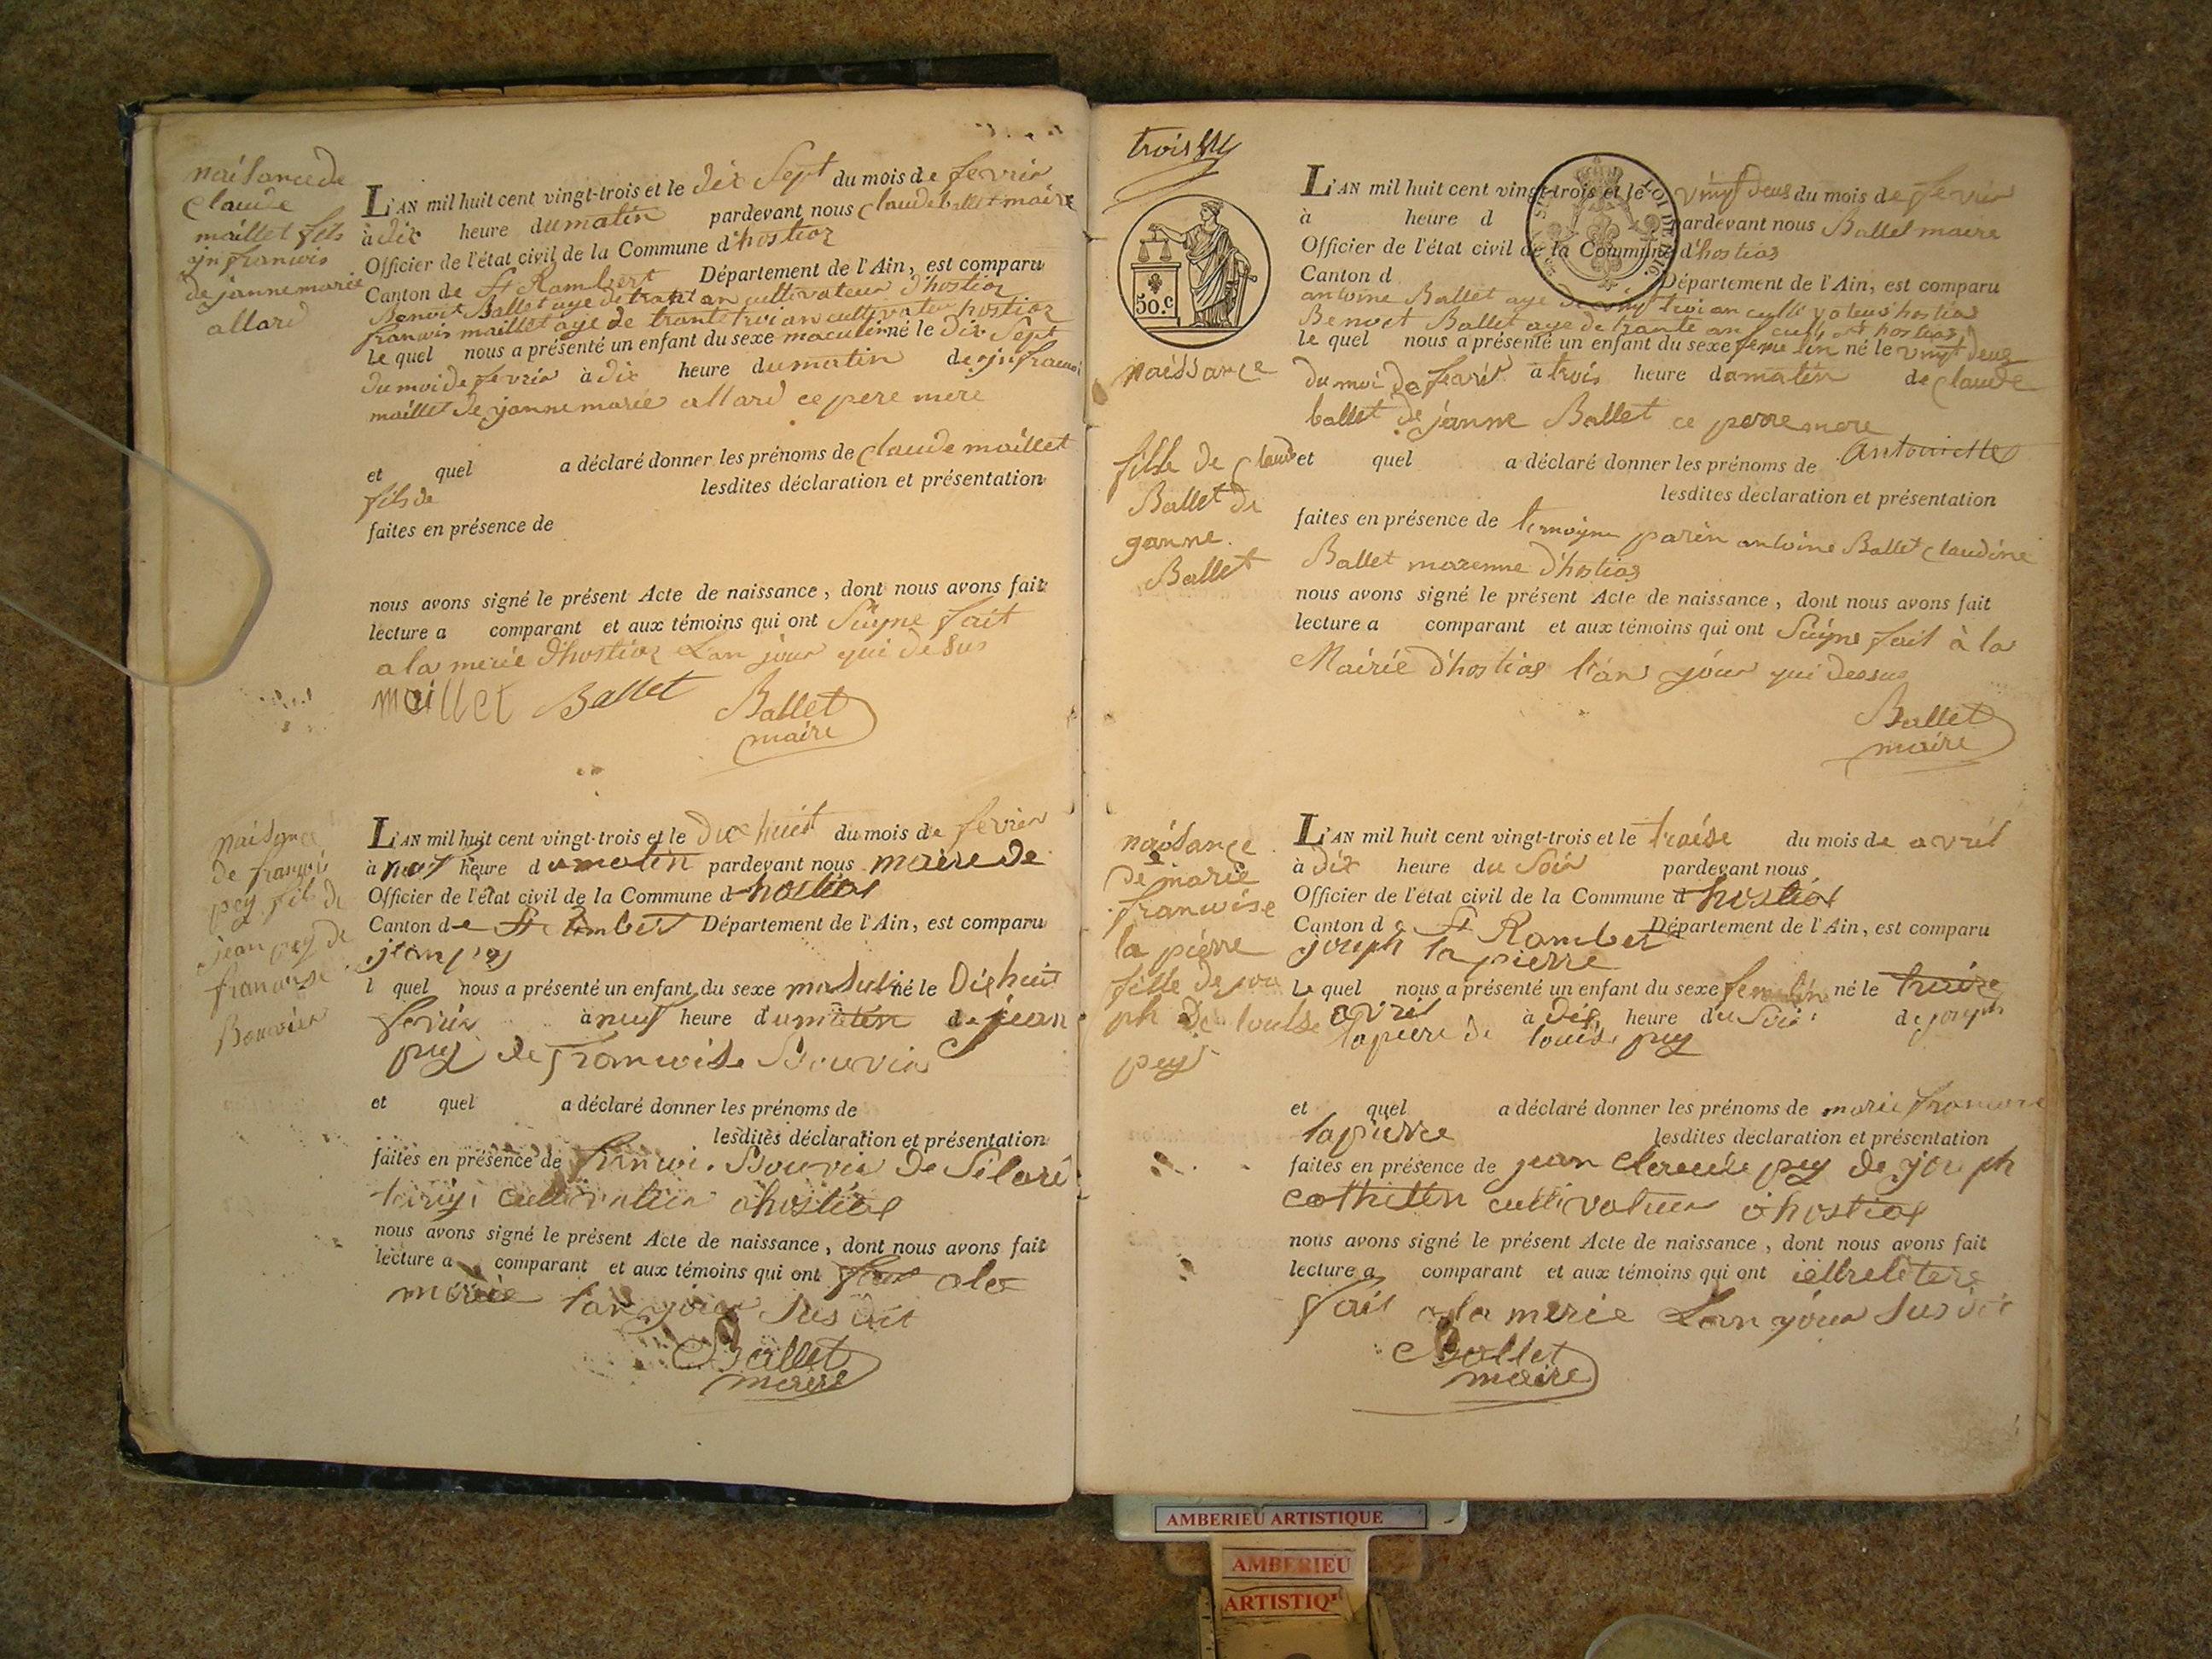 naisance de
claude
maillet fils
de janne marie
allard
L'AN mil huit cent vingt-trois et le dix sept du mois de fevrier
à dix heure du matin pardevant nous claude ballet maire
Officier de l'état civil de la Commune d'hostiaz
Canton de St Rambert Département de l'Ain, est comparu
Benoit Ballet age de trant an cultivateur d'hostiaz
francois maillet age de trante troi an cultivateu hostiaz
le quel nous a présenté un enfant du sexe maculin né le dix sept
du moi de fevrier à dix heure du matin de
maillet de janne marie allard ce pere mere
et quel a déclaré donner les prénoms de claude maillet
fils de lesdites déclaration et présentation
faites en présence de
nous avons signé le présent Acte de naissance, dont nous avons fait
lecture a comparant et aux témoins qui ont Signe fait
a la merie d'hostiaz L'an jour qui desus
maillet Ballet Ballet
maire
naisance
de francois
pey fils de
jean pey de
francoise
Bouvier
L'AN mil huit cent vingt-trois et le dix huit du mois de fevrier
à neuf heure du matin pardevant nous maire de
Officier de l'état civil de la Commune d hostias
Canton de St Département de l'Ain, est comparu
jean pey
l quel nous a présenté un enfant du sexe né le Dix huit
à neuf heure du matin de jean
pey de francoise Bouvier
et quel a déclaré donner les prénoms de
lesdites déclaration et présentation
faites en présence de Bouvier de
hostias
nous avons signé le présent Acte de naissance, dont nous avons fait
lecture a comparant et aux témoins qui ont fait a la
merie l'an jour sus dit
Ballet
maire
trois
50.c
naissance
fille de Claud
Ballet de
ganne
Ballet
L'AN mil huit cent vingt-trois et le vingt deus du mois de fevrier
à heure d pardevant nous Ballet maire
Officier de l'état civil de la Commune d'hostias
Canton d Département de l'Ain, est comparu
antoine Ballet age de vingt troi an hostias
Benoit Ballet age de trante an hostias
le quel nous a présenté un enfant du sexe né le vingt deus
du moi de à trois heure du matin de claude
ballet de janne Ballet ce perre mere
et quel a déclaré donner les prénoms de Antoinette
lesdites déclaration et présentation
faites en présence de parin antoine Ballet Claudine
Ballet marenne d'hostias
nous avons signé le présent Acte de naissance, dont nous avons fait
lecture a comparant et aux témoins qui ont fait à la
Mairie d'hostias l'an jour qui dessus
Ballet
maire
naisance
de marie
francoise
la pierre
fille de jose
ph de louise
pey
L'AN mil huit cent vingt-trois et le traise du mois de avril
à dix heure du soir pardevant nous
Officier de l'état civil de la Commune d hostias
Canton d St Rambert Département de l'Ain, est comparu
joseph la pierre
Le quel nous a présenté un enfant du sexe né le
avril à dix heure du soir de joseph
lapierre de louise pey
et quel a déclaré donner les prénoms de marie francoise
lapierre lesdites déclaration et présentation
faites en présence de jean pey de joseph
cultivateur hostias
nous avons signé le présent Acte de naissance, dont nous avons fait
lecture a comparant et aux témoins qui ont
fait a la merie L'an jour sus dit
Ballet
maire
AMBERIEU ARTISTIQUE
AMBERIEU
ARTISTIQ